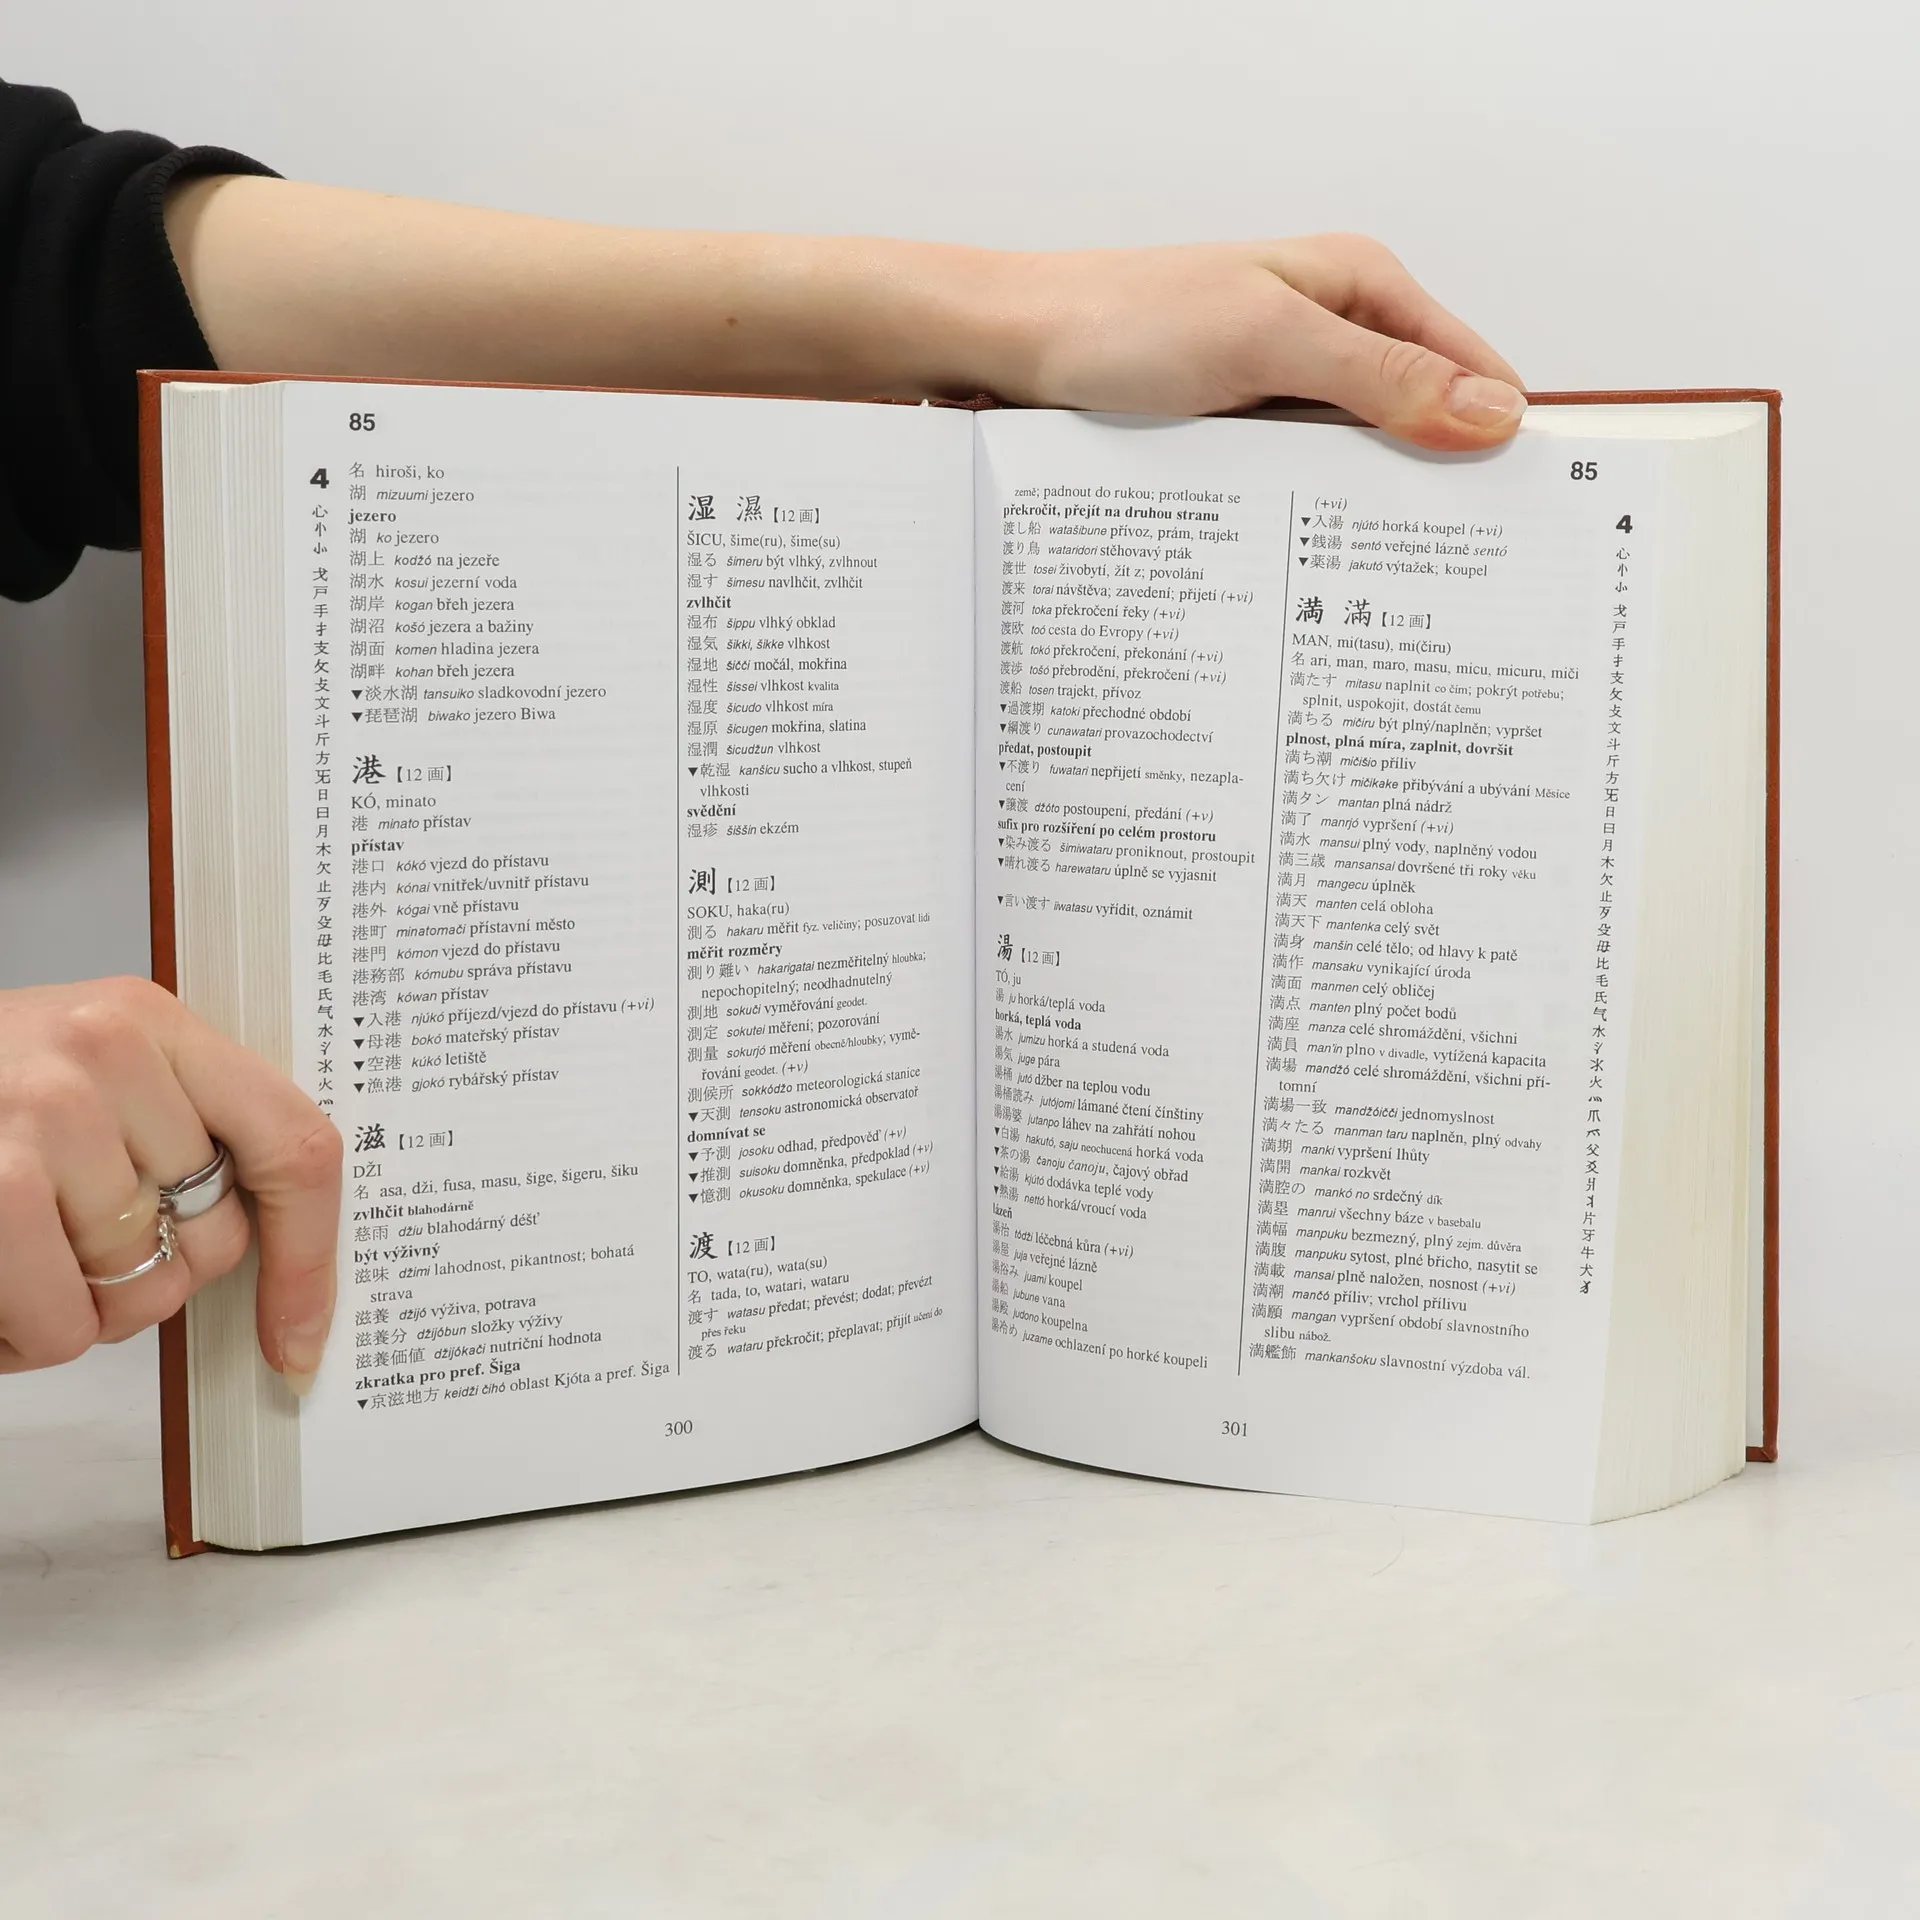 85
4
心
忄
㣺
戈
戸
手
扌
支
攵
攴
文
斗
斤
方
旡
日
曰
月
木
欠
止
歹
殳
毋
比
毛
氏
气
水
氵
氺
火
灬
名 hiroši, ko
湖 mizuumi jezero
jezero
湖 ko jezero
湖上 kodžó na jezeře
湖水 kosui jezerní voda
湖岸 kogan břeh jezera
湖沼 košó jezera a bažiny
湖面 komen hladina jezera
湖畔 kohan břeh jezera
▼淡水湖 tansuiko sladkovodní jezero
▼琵琶湖 biwako jezero Biwa
港【12画】
KÓ, minato
港 minato přístav
přístav
港口 kókó vjezd do přístavu
港内 kónai vnitřek/uvnitř přístavu
港外 kógai vně přístavu
港町 minatomači přístavní město
港門 kómon vjezd do přístavu
港務部 kómubu správa přístavu
港湾 kówan přístav
▼入港 njúkó příjezd/vjezd do přístavu (+vi)
▼母港 bokó mateřský přístav
▼空港 kúkó letiště
▼漁港 gjokó rybářský přístav
滋【12画】
DŽI
名 asa, dži, fusa, masu, šige, šigeru, šiku
zvlhčit blahodárně
慈雨 džiu blahodárný déšť
být výživný
滋味 džimi lahodnost, pikantnost; bohatá
strava
滋養 džijó výživa, potrava
滋養分 džijóbun složky výživy
滋養価値 džijókači nutriční hodnota
zkratka pro pref. Šiga
▼京滋地方 keidži čihó oblast Kjóta a pref. Šiga
湿 濕【12画】
ŠICU, šime(ru), šime(su)
湿る šimeru být vlhký, zvlhnout
湿す šimesu navlhčit, zvlhčit
zvlhčit
湿布 šippu vlhký obklad
湿気 šikki, šikke vlhkost
湿地 šičči močál, mokřina
湿性 šissei vlhkost kvalita
湿度 šicudo vlhkost míra
湿原 šicugen mokřina, slatina
湿潤 šicudžun vlhkost
▼乾湿 kanšicu sucho a vlhkost, stupeň
vlhkosti
svědění
湿疹 šiššin ekzém
測【12画】
SOKU, haka(ru)
測る hakaru měřit fyz. veličiny; posuzovat lidi
měřit rozměry
測り難い hakarigatai nezměřitelný hloubka;
nepochopitelný; neodhadnutelný
測地 sokuči vyměřování geodet.
測定 sokutei měření; pozorování
測量 sokurjó měření obecně/hloubky; vymě-
řování geodet. (+v)
測候所 sokkódžo meteorologická stanice
▼天測 tensoku astronomická observatoř
domnívat se
▼予測 josoku odhad, předpověď (+v)
▼推測 suisoku domněnka, předpoklad (+v)
▼憶測 okusoku domněnka, spekulace (+v)
渡【12画】
TO, wata(ru), wata(su)
名 tada, to, watari, wataru
渡す watasu předat; převést; dodat; převézt
přes řeku
渡る wataru překročit; přeplavat; přijít učení do
300
země; padnout do rukou; protloukat se
překročit, přejít na druhou stranu
渡し船 watašibune přívoz, prám, trajekt
渡り鳥 wataridori stěhovavý pták
渡世 tosei živobytí, žít z; povolání
渡来 torai návštěva; zavedení; přijetí (+vi)
渡河 toka překročení řeky (+vi)
渡欧 toó cesta do Evropy (+vi)
渡航 tokó překročení, překonání (+vi)
渡渉 tošó přebrodění, překročení (+vi)
渡船 tosen trajekt, přívoz
▼過渡期 katoki přechodné období
▼綱渡り cunawatari provazochodectví
předat, postoupit
▼不渡り fuwatari nepřijetí směnky, nezapla-
cení
▼譲渡 džóto postoupení, předání (+v)
sufix pro rozšíření po celém prostoru
▼染み渡る šimiwataru proniknout, prostoupit
▼晴れ渡る harewataru úplně se vyjasnit
▼言い渡す iiwatasu vyřídit, oznámit
湯【12画】
TÓ, ju
湯 ju horká/teplá voda
horká, teplá voda
湯水 jumizu horká a studená voda
湯気 juge pára
湯桶 jutó džber na teplou vodu
湯桶読み jutójomi lámané čtení čínštiny
湯湯婆 jutanpo láhev na zahřátí nohou
▼白湯 hakutó, saju neochucená horká voda
▼茶の湯 čanoju čanoju, čajový obřad
▼給湯 kjútó dodávka teplé vody
▼熱湯 nettó horká/vroucí voda
lázeň
湯治 tódži léčebná kůra (+vi)
湯屋 juja veřejné lázně
湯浴み juami koupel
湯船 jubune vana
湯殿 judono koupelna
湯冷め juzame ochlazení po horké koupeli
(+vi)
▼入湯 njútó horká koupel (+vi)
▼銭湯 sentó veřejné lázně sentó
▼薬湯 jakutó výtažek; koupel
満 滿【12画】
MAN, mi(tasu), mi(čiru)
名 ari, man, maro, masu, micu, micuru, miči
満たす mitasu naplnit co čím; pokrýt potřebu;
splnit, uspokojit, dostát čemu
満ちる mičiru být plný/naplněn; vypršet
plnost, plná míra, zaplnit, dovršit
満ち潮 mičišio příliv
満ち欠け mičikake přibývání a ubývání Měsíce
満タン mantan plná nádrž
満了 manrjó vypršení (+vi)
満水 mansui plný vody, naplněný vodou
満三歳 mansansai dovršené tři roky věku
満月 mangecu úplněk
満天 manten celá obloha
満天下 mantenka celý svět
満身 manšin celé tělo; od hlavy k patě
満作 mansaku vynikající úroda
満面 manmen celý obličej
満点 manten plný počet bodů
満座 manza celé shromáždění, všichni
満員 man'in plno v divadle, vytížená kapacita
満場 mandžó celé shromáždění, všichni pří-
tomní
満場一致 mandžóičči jednomyslnost
満々たる manman taru naplněn, plný odvahy
満期 manki vypršení lhůty
満開 mankai rozkvět
満腔の mankó no srdečný dík
満塁 manrui všechny báze v basebalu
満幅 manpuku bezmezný, plný zejm. důvěra
満腹 manpuku sytost, plné břicho, nasytit se
満載 mansai plně naložen, nosnost (+vi)
満潮 mančó příliv; vrchol přílivu
満願 mangan vypršení období slavnostního
slibu nábož.
満艦飾 mankanšoku slavnostní výzdoba vál.
301
85
4
心
忄
㣺
戈
戸
手
扌
支
攵
攴
文
斗
斤
方
旡
日
曰
月
木
欠
止
歹
殳
毋
比
毛
氏
气
水
氵
氺
火
灬
爪
爫
父
爻
爿
丬
片
牙
牛
犬
犭